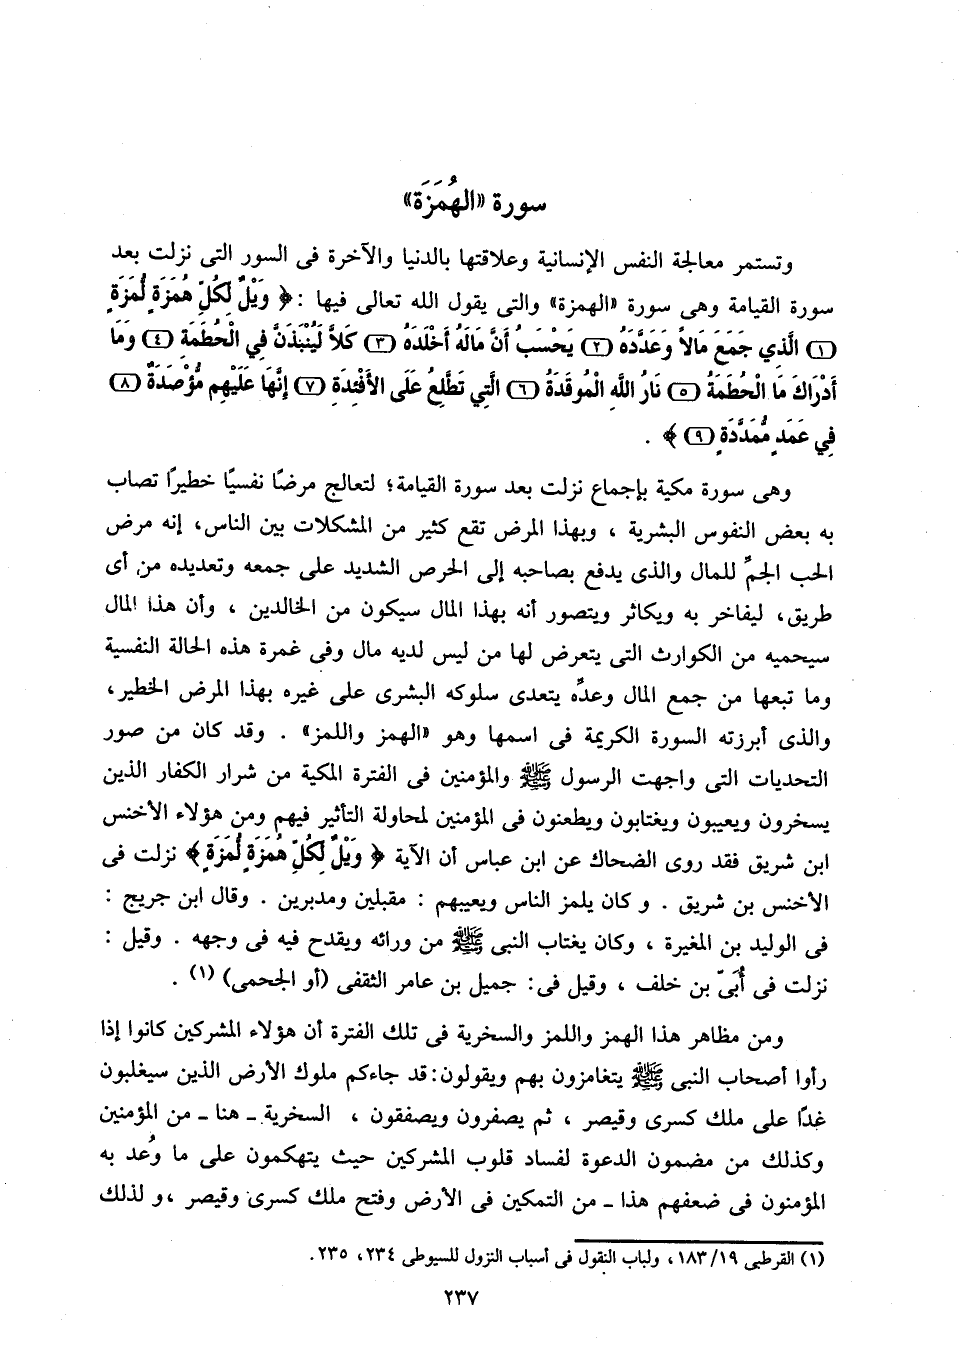 سورة «الهُمَزَة»
وتستمر معالجة النفس الإنسانية وعلاقتها بالدنيا والآخرة فى السور التى نزلت بعد
سورة القيامة وهى سورة «الهمزة» والتى يقول الله تعالى فيها : ﴿ وَيْلٌ لِّكُلِّ هُمَزَةٍ لُّمَزَةٍ
(١) الَّذِي جَمَعَ مَالاً وَعَدَّدَهُ (٢) يَحْسَبُ أَنَّ مَالَهُ أَخْلَدَهُ (٣) كَلاَّ لَيُنْبَذَنَّ فِي الْحُطَمَةِ (٤) وَمَا
أَدْرَاكَ مَا الْحُطَمَةُ (٥) نَارُ اللَّهِ الْمُوقَدَةُ (٦) الَّتِي تَطَّلِعُ عَلَى الأَفْئِدَةِ (٧) إِنَّهَا عَلَيْهِم مُّؤْصَدَةٌ (٨)
فِي عَمَدٍ مُّمَدَّدَةٍ (٩) ﴾ .
وهى سورة مكية بإجماع نزلت بعد سورة القيامة؛ لتعالج مرضًا نفسيًا خطيرًا تصاب
به بعض النفوس البشرية ، وبهذا المرض تقع كثير من المشكلات بين الناس، إنه مرض
الحب الجمِّ للمال والذى يدفع بصاحبه إلى الحرص الشديد على جمعه وتعديده من أى
طريق، ليفاخر به ويكاثر ويتصور أنه بهذا المال سيكون من الخالدين ، وأن هذا المال
سيحميه من الكوارث التى يتعرض لها من ليس لديه مال وفى غمرة هذه الحالة النفسية
وما تبعها من جمع المال وعدِّه يتعدى سلوكه البشرى على غيره بهذا المرض الخطير،
والذى أبرزته السورة الكريمة فى اسمها وهو «الهمز واللمز» . وقد كان من صور
التحديات التى واجهت الرسول ﷺ والمؤمنين فى الفترة المكية من شرار الكفار الذين
يسخرون ويعيبون ويغتابون ويطعنون فى المؤمنين لمحاولة التأثير فيهم ومن هؤلاء الأخنس
ابن شريق فقد روى الضحاك عن ابن عباس أن الآية ﴿ وَيْلٌ لِّكُلِّ هُمَزَةٍ لُّمَزَةٍ ﴾ نزلت فى
الأخنس بن شريق . وكان يلمز الناس ويعيبهم : مقبلين ومدبرين . وقال ابن جريج :
فى الوليد بن المغيرة ، وكان يغتاب النبى ﷺ من ورائه ويقدح فيه فى وجهه . وقيل :
نزلت فى أُبَىّ بن خلف ، وقيل فى: جميل بن عامر الثقفى (أو الجحمى) (١) .
ومن مظاهر هذا الهمز واللمز والسخرية فى تلك الفترة أن هؤلاء المشركين كانوا إذا
رأوا أصحاب النبى ﷺ يتغامزون بهم ويقولون: قد جاءكم ملوك الأرض الذين سيغلبون
غدًا على ملك كسرى وقيصر ، ثم يصفرون ويصفقون ، السخرية ـ هنا ـ من المؤمنين
وكذلك من مضمون الدعوة لفساد قلوب المشركين حيث يتهكمون على ما وُعد به
المؤمنون فى ضعفهم هذا ـ من التمكين فى الأرض وفتح ملك كسرى وقيصر ، ولذلك
(١) القرطبى ١٨٣/١٩ ، ولباب النقول فى أسباب النزول للسيوطى ٢٣٤، ٢٣٥.
٢٣٧